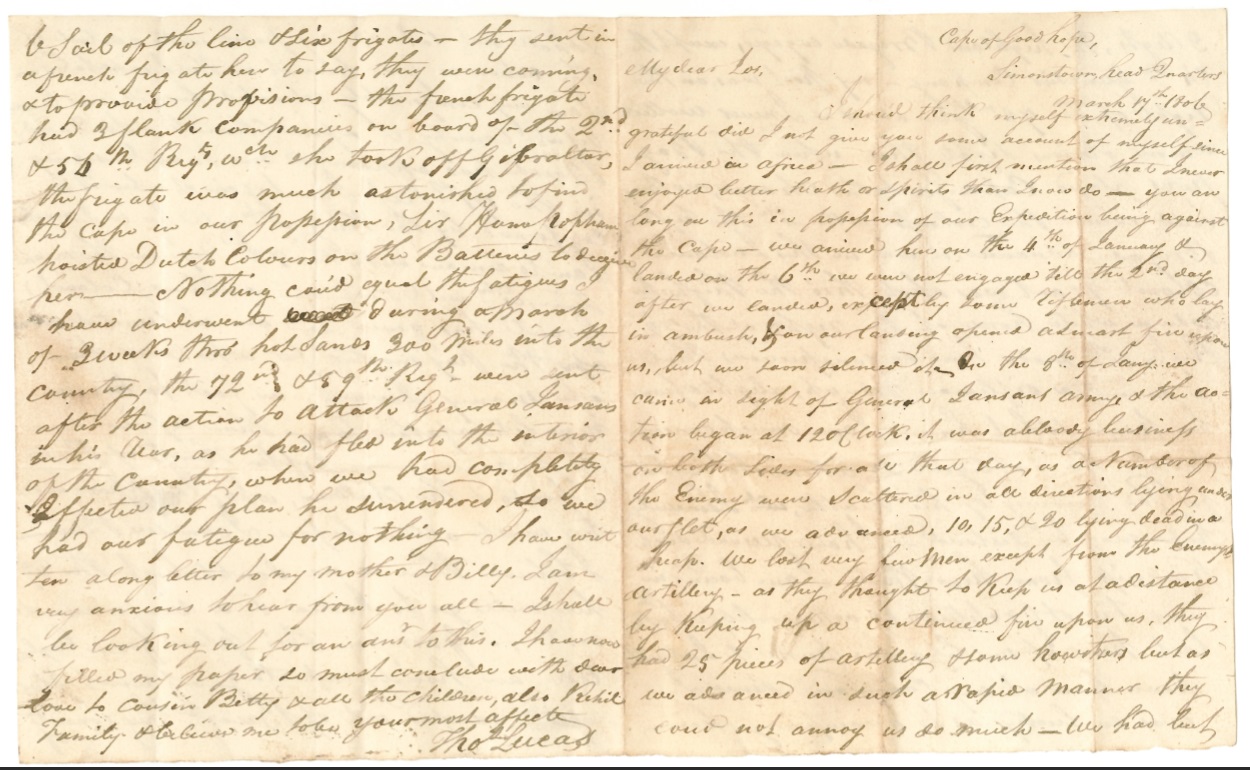 Cape of Good hope,
Simonstown, head Quarters
March 17th 1806
My dear Jos,
I shou'd think myself extremely un=
grateful did I not give you some account of myself since
I arrived in africa — I shall first mention that I never
enjoyed better health or spirits than I now do — you are
long ere this in possession of our Expedition being against
the Cape — we arrived here on the 4th of January &
landed on the 6th we were not engaged till the 2nd day
after we landed, except by some Riflemen who lay
in ambush, & on our landing opened a smart fire upon
us, but we soon silenced it. On the 8th of Jany. we
came in sight of General Jansans army, & the ac=
tion began at 12 oClock. it was a bloody business
on both sides for all that day, as a Number of
the Enemy were scattered in all directions lying under
our feet, as we advanced, 10, 15, & 20 lying dead in a
heap. We lost very few Men except from the Enemys
artillery — as they thought to keep us at a distance
by keeping up a continued fire upon us, they
had 25 pieces of artillery & some howitzers but as
we advanced in such a rapid manner they
coud not annoy us so much — We had but
6 Sail of the line & six frigates — they sent in
a french frigate here to say, they were coming,
& to provide provisions — the french frigate
had 2 flank companies on board of the 2nd
& 54th Regt, wch she took off Gibraltar,
the frigate was much astonished to find
the Cape in our Possession, Sir Home Popham
hoisted Dutch Colours on the Batteries to deceive
her —— Nothing cou'd equal the fatigues I
have underwent during a March
of 3 weeks thro' hot Sands 300 Miles into the
country, the 72nd & 59th Regt were sent
after the action to attack General Jansans
in his rear, as he had fled into the interior
of the Country, when we had completely
Effected our plan he surrendered, so we
had our fatigue for nothing — I have writ
ten a long letter to my mother & Billy. I am
very anxious to hear from you all — I shall
be looking out for an ansr to this. I have now
filled my paper so must conclude with dear
Love to Cousin Betty & all the Children, also
Family & believe me to be your most affecte
Thos Lucas